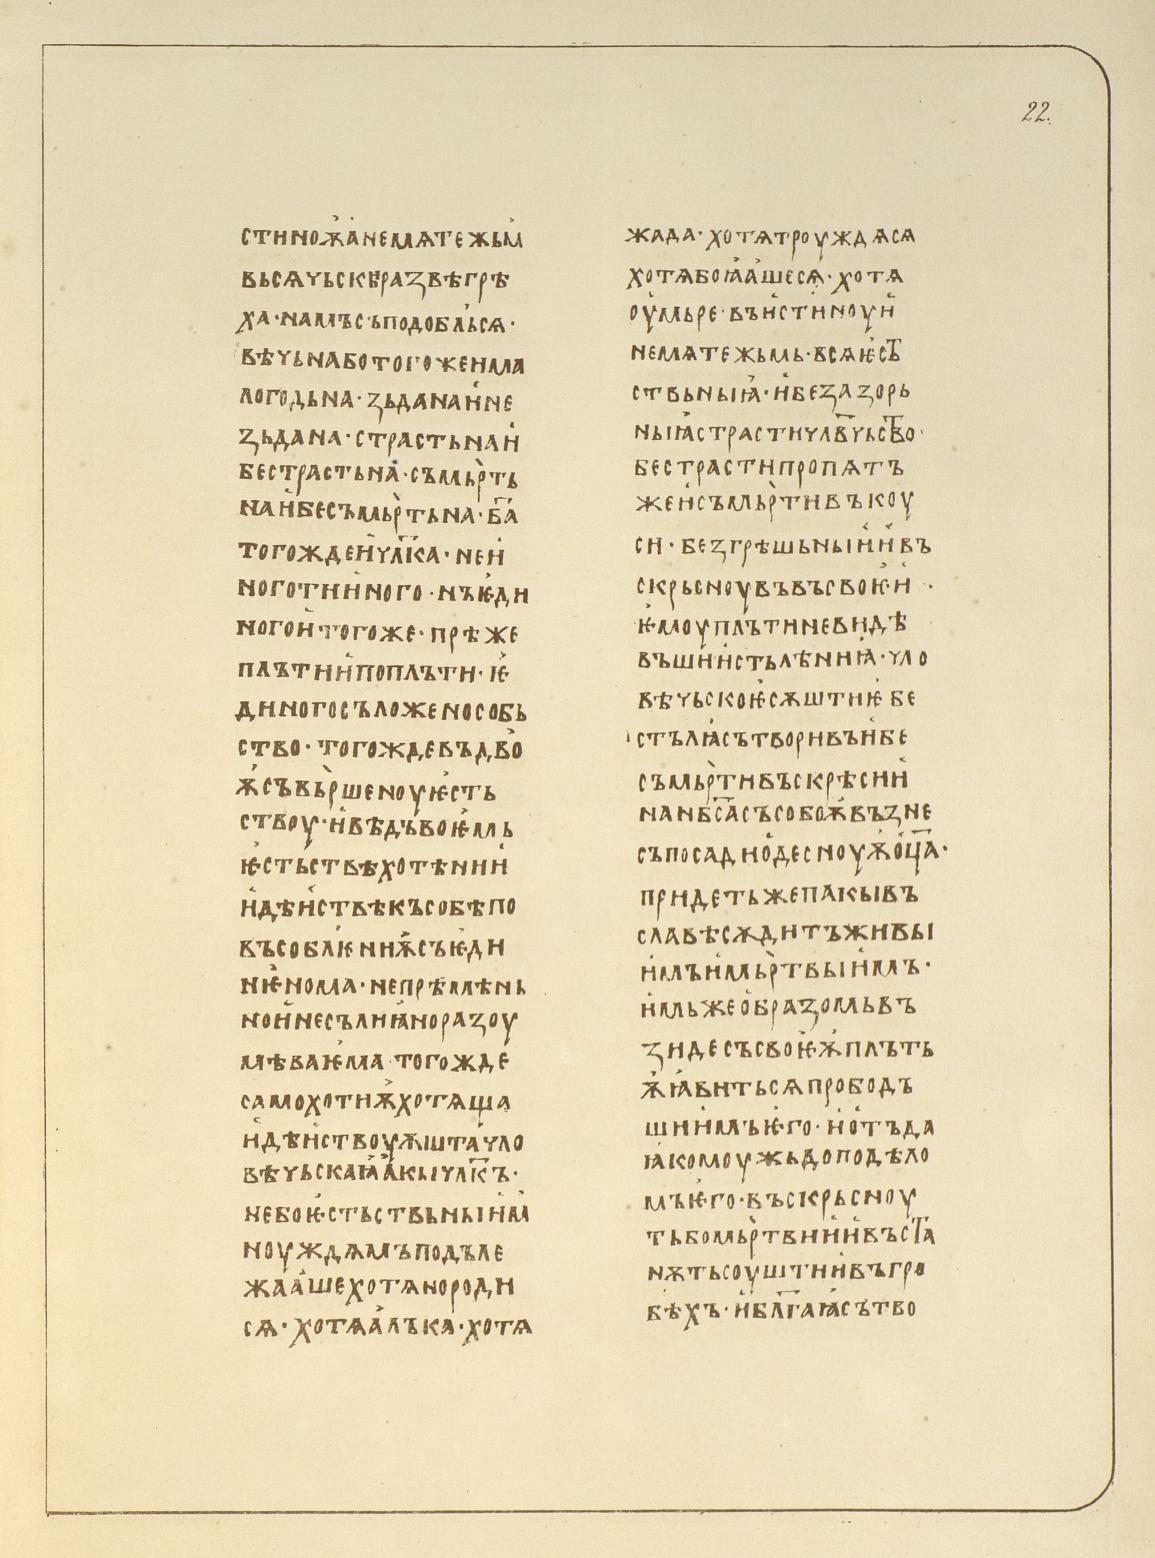 22.
стиноѫ҅а҅немѧтежьм҅
вьсѧчьскꙑразвѣгрѣ
ха·намъсъподобл҄ьсѧ·
вѣчьнаботогожеима
логодьна·ꙁьданаи҅не
ꙁьдана·страстьнаи҅
бестрастьна҅·съмьр̀ть
наи҅бесъмьр̀тьна·б҃а
тогождеи҅чл҃ка·неи҅
ноготии҅ного·нъѥ҅ди
ногои҅тогоже·прѣже
плътии҅поплъти·ѥ҅
диногосъложенособь
ство·тогождевъдво҅
ѭ҅съвьр̀шеноуѥ҅сть
ствоу·и҅вѣдъвоѥ҅мь
ѥ҅стьствѣхотѣнии҅
и҅дѣи҅ствѣкъсобѣпо
въсоблѥ҅ниѭ҅съѥ҅ди
нѥ҅нома·непрѣмѣнь
нои҅несълиꙗ҅норазоу
мѣваѥ҅ма·тогожде
самохотиѭ҅хотѧща
и҅дѣи҅ствоуѭштачло
вѣчьскаꙗ҅а҅кꙑчл҃къ·
небоѥ҅стьствьнꙑи҅м҅
ноуждѧмъподъле
жаа҅шехотѧнороди
сѧ·хотѧа҅лъка·хотѧ
жада·хотѧтроуждѧсѧ
хотѧбоꙗ҅а҅шесѧ·хотѧ
оу҅мьре·въи҅стиноуи҅
немѧтежьмь·всѧѥ҅ст҃
ствьнꙑꙗ҅·и҅безазорь
нꙑꙗ҅страстичл҃вчьст҃во·
бестрастипропѧтъ
жеи҅съмьр̀тивъкоу
си·безгрѣшьнꙑи҅и҅въ
скрьсноувъвъсвоѥ҅и҅·
ѥ҅моуплътиневидѣ
въшии҅и҅стьлѣниꙗ҅·чло
вѣчьскоѥ҅сѫштиѥ҅бе
стълꙗ҅сътворивъи҅бе
съмьр̀тивъскрѣсии҅
нанб҃сасъсобоѭ҅възне
съпосадио҅десноуѭ҅о҅ц҃а·
придетьжепакꙑвъ
славѣсѫдитъживꙑ
и҅мъи҅мьр̀твꙑи҅мъ·
и҅мьжео҅бразомьвъ
зидесъсвоѥ҅ѭ҅плъть
ѭ҅ꙗ҅витьсѧпрободъ
шии҅мъѥ҅го·и҅о҅тъда
ꙗ҅комоужьдоподѣло
мъѥ҅го·въскрьсноу
тьбомьр̀твии҅и҅въст҃а
нѫтьсоу҅штии҅въгро
бѣхъ·и҅бл҃гаꙗ҅сътво